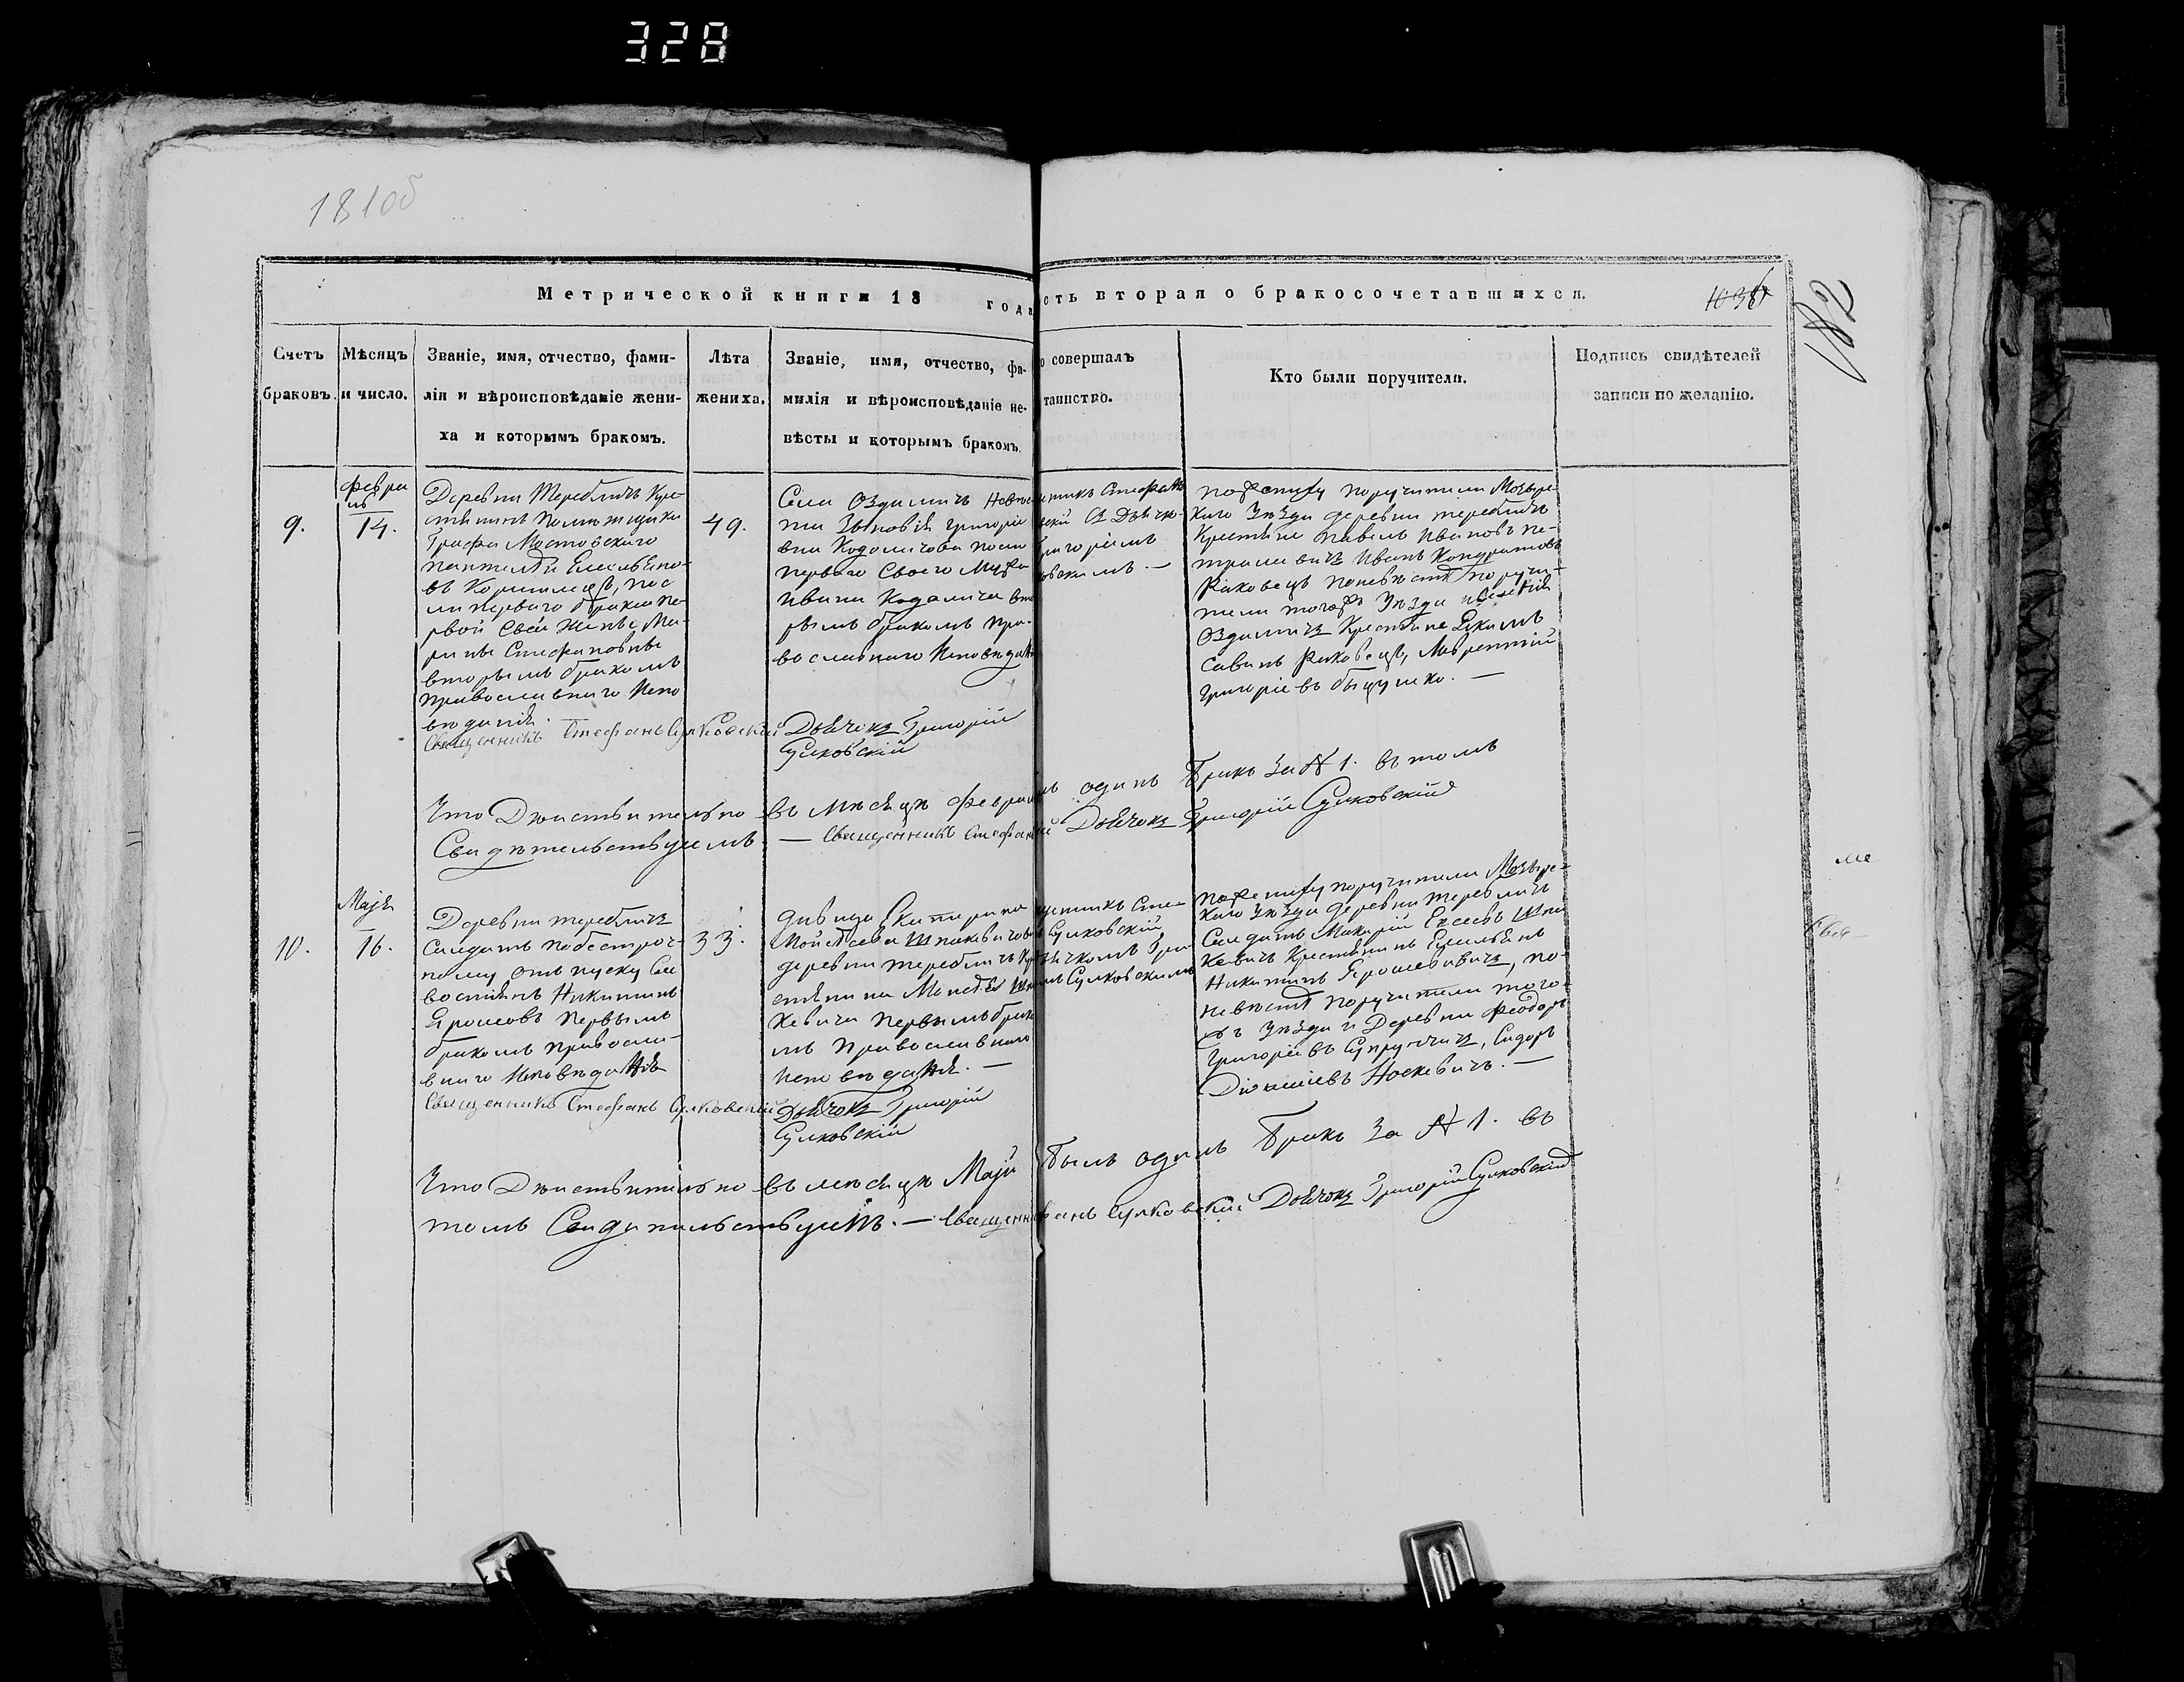 328
181об
Метрической книги 18 года
сть вторая о бракосочетавшихся.
1036
182
Счетъ браковъ.
Мѣсяцъ и число.
Званіе, имя, отчество, фами-
лія и вѣроисповѣданіе жени-
ха и которымъ бракомъ.
Лѣта жениха.
Званіе, имя, отчество, фа-
милія и вѣроисповѣданіе не-
вѣсты и которымъ бракомъ.
о совершалъ
таинство.
Кто были поручители.
Подпись свидѣтелей
записи по желанію.
9.
Февра
ль
14.
Деревни Теребличъ Кре-
стянинъ Помѣщика
Графа Мостовского
Пантелѣй Емельяно-
въ пос
ли перваго брака пе-
рвой Своей Жены Ма-
рины Стефановны
вторымъ бракомъ
православнаго Испо
вѣданія.
Священникъ Стефанъ Сулковскій
49.
Села Оздамичъ Невѣс-
та Зѣновія Григоріе
вна посли
перваго Своего Мужа
Ивана вто
рымъ бракомъ пра-
вославнаго Исповѣдан
Дьячокъ Григорій
Сулковскій
щеникъ Стефанъ
вскій Съ Дьячко-
Григоріемъ
ковскимъ. —
по Жениху поручители Мозыре-
каго Уѣзда деревни теребличъ
Крестяне Павелъ Ивановъ Пе-
трашевичъ Иванъ Кондратовъ
Раковецъ по невѣстѣ поручи-
тели тогожъ Уѣзда и Селенія
Оздамичъ Крестяне Якимъ
Савинъ Раковецъ, Лаврентій
Григоріевъ —
Что Дѣйствительно въ мѣсяцѣ Февралѣ одинъ Бракъ за № 1. въ томъ
Свидѣтельствуемъ — Священникъ Стефан й Дьячокъ Григорій Сулковскій
10.
Маія
16.
Деревни теребличъ
Солдатъ по безсроч-
ному отпуску Сев
востіянъ Никитинъ
Ярошовъ первымъ
бракомъ православ-
внаго Исповѣданія
Священникъ Стефанъ Сулковскій
33.
дивица Екатерина
Мойсѣева Шпакевичова
деревни теребличъ Кре
стянина Моисѣя Шпа
кевича первымъ брако
мъ Православнаго
исповѣданія. —
Дьячокъ Григорій
Сулковскій
щеникъ Сте-
Сулковскій,
ячкомъ Гри
мъ Сулковскимъ
по Жениху поручители Мозыре-
каго Уѣзда деревни теребличъ
Солдатъ Макарій Шпа
кевичъ Крестянинъ Емельянъ
Никитинъ Ярошевичъ, по
невѣстѣ поручители того-
жъ Уѣзда и Деревни Феодоръ
Григоріевъ Супрунчикъ, Сидоръ
Носкевичъ. —
Что Дѣйствительно въ мѣсяцѣ Маіи Былъ одинъ Бракъ за № 1. въ
томъ Свидѣтельствуемъ. — Священн фанъ Сулковскій Дьячокъ Григорій Сулковскій
ме
Свя